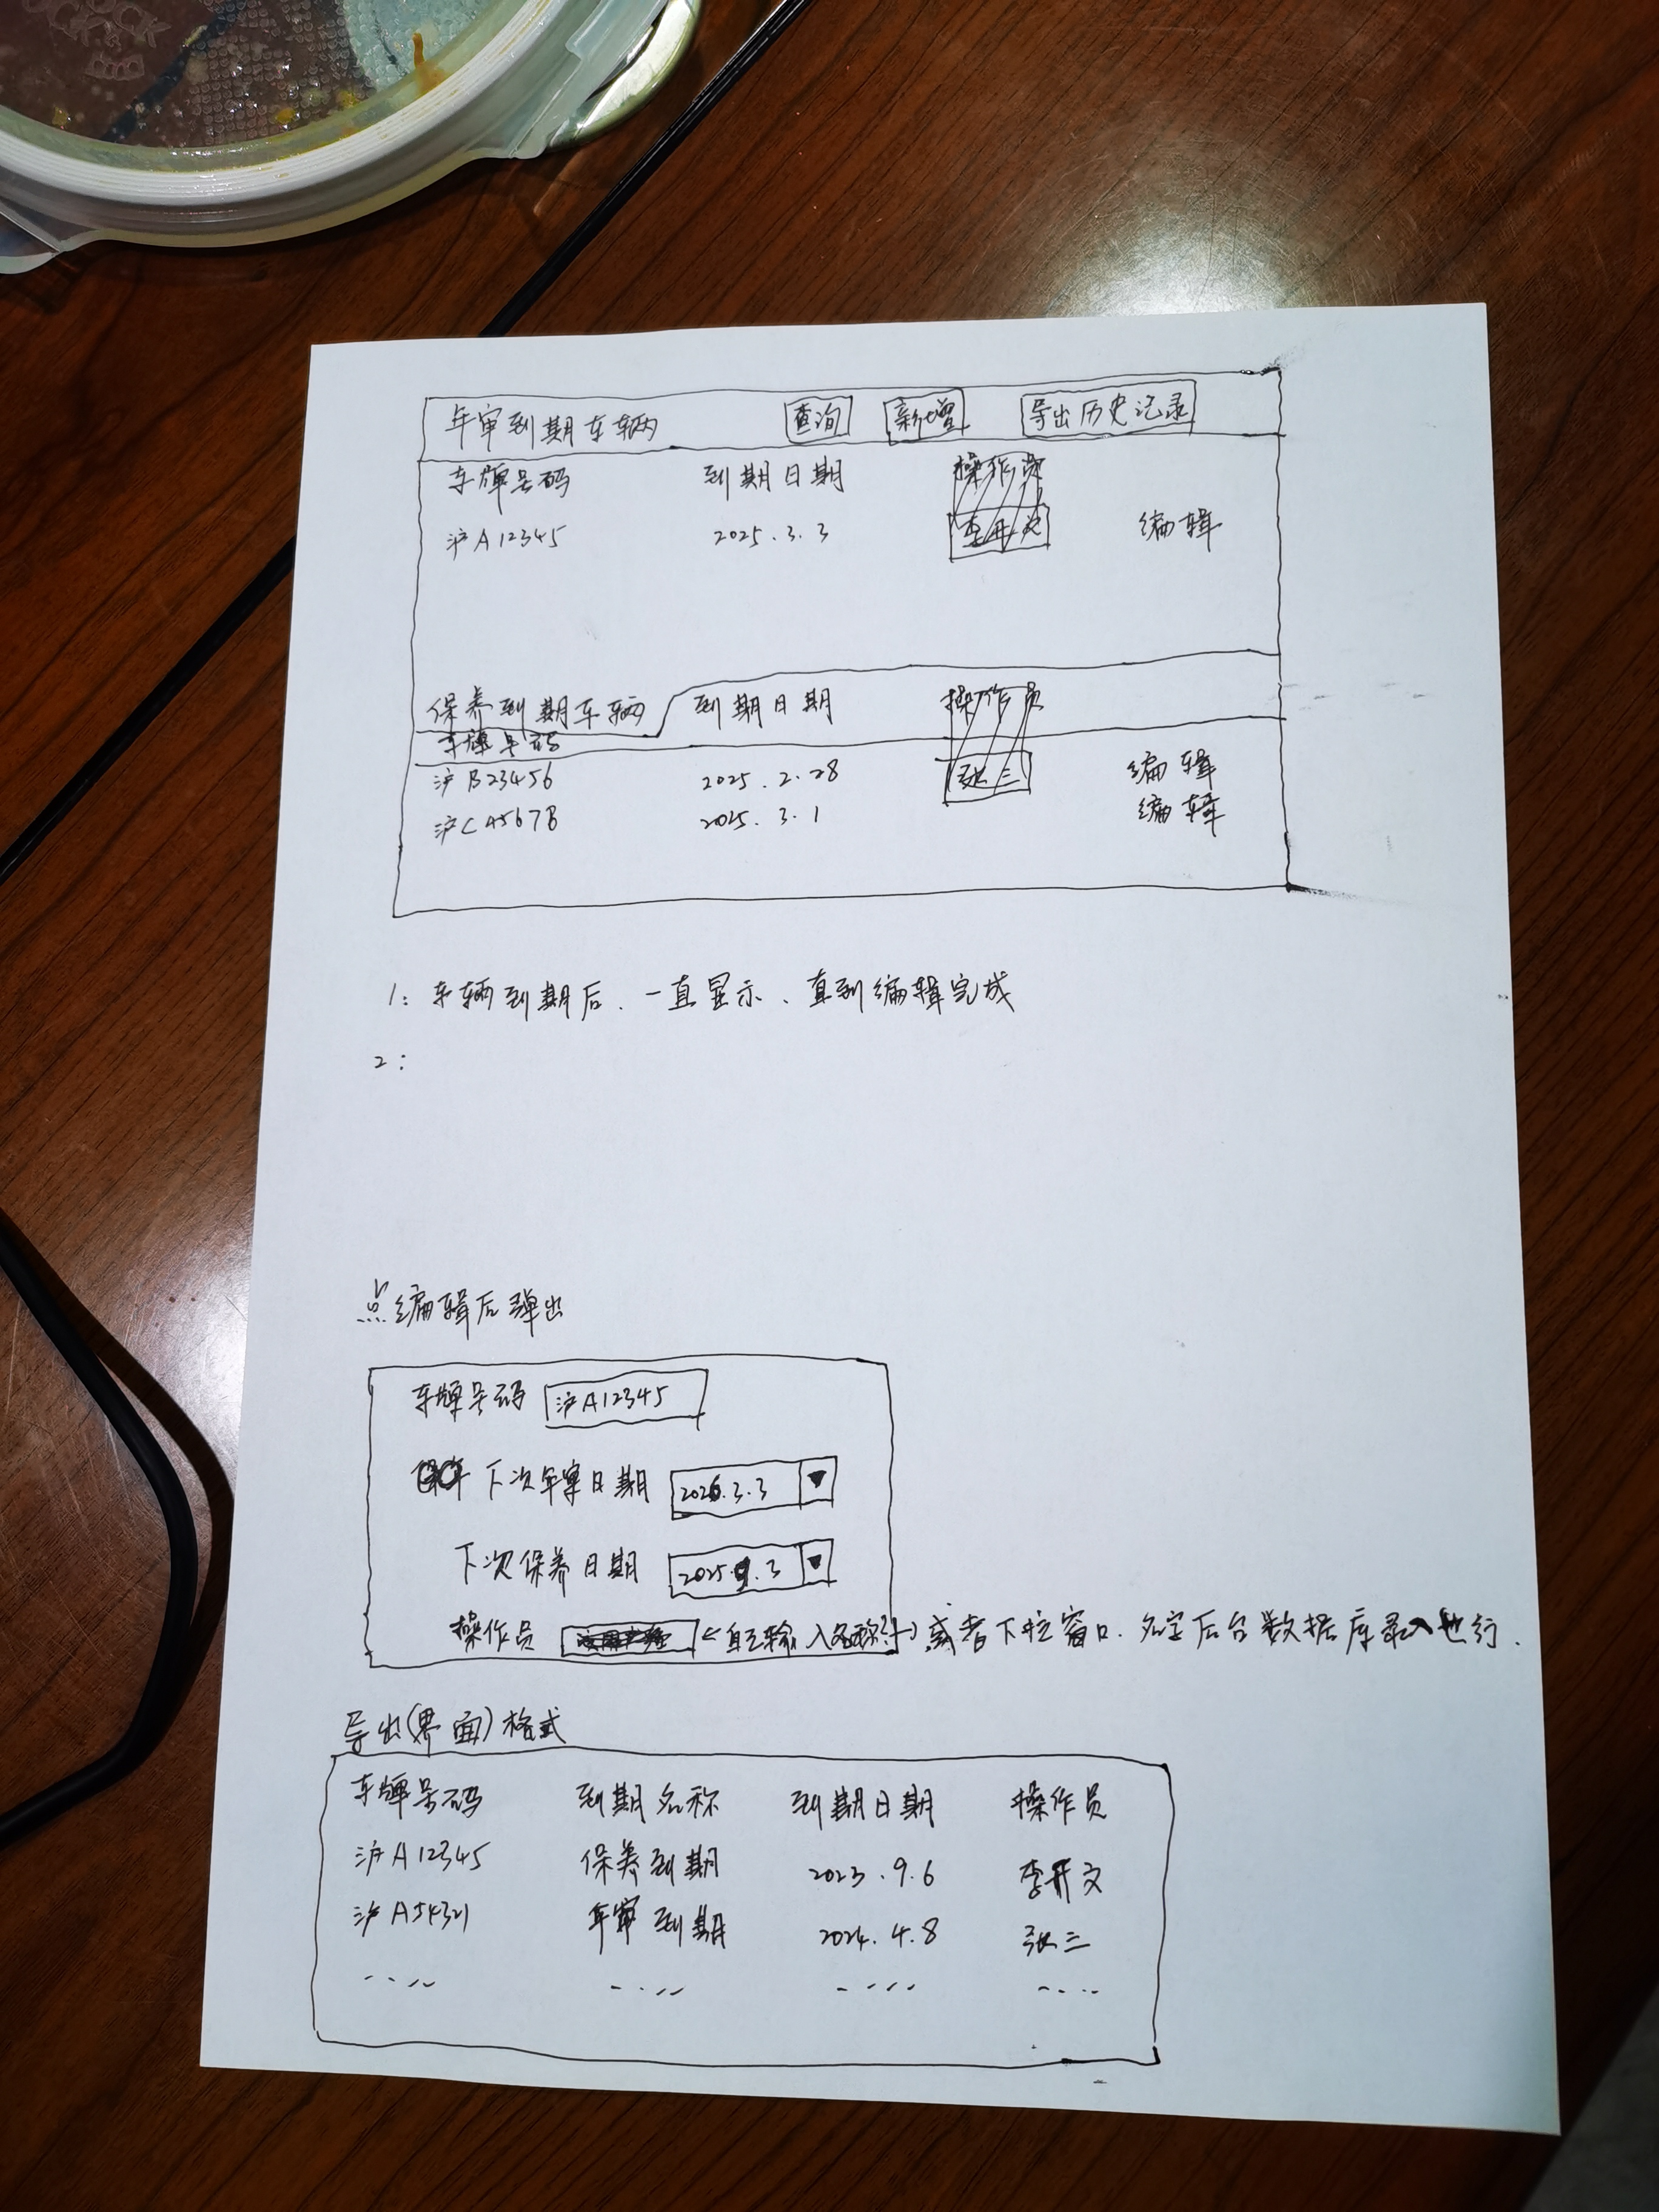 年审到期车辆 查询 新增 导出历史记录
车牌号码 到期日期 操作员
沪A12345 2025.3.3 编辑
保养到期车辆 到期日期 操作员
车牌号码
沪B23456 2025.2.28 张三 编辑
沪C45678 2025.3.1 编辑
1: 车辆到期后、一直显示、直到编辑完成
2:
点编辑后弹出
车牌号码 沪A12345
下次年审日期 2026.3.3
下次保养日期 2025.9.3
操作员 ←自己输入名称 或者下拉窗口.名字后台数据库录入也行.
导出(界面)格式
车牌号码 到期名称 到期日期 操作员
沪A12345 保养到期 2023.9.6 李开文
沪A54321 年审到期 2024.4.8 张三